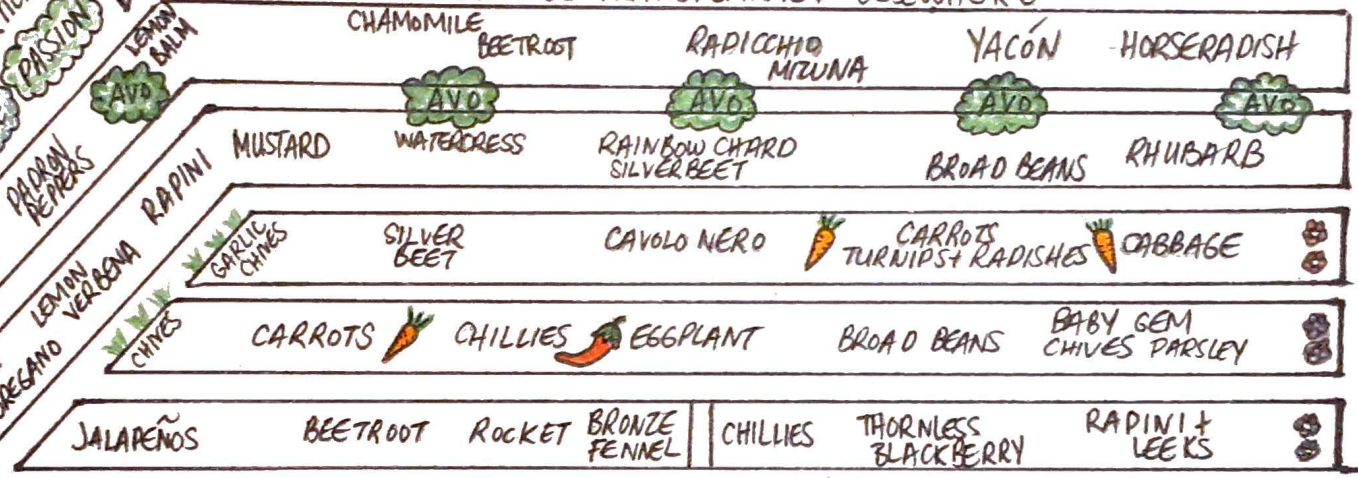 ELSEWHERE
PASSION
LEMON
BALM
CHAMOMILE
BEETROOT
RADICCHIO
MIZUNA
YACÓN
HORSERADISH
AVO
AVO
AVO
AVO
AVO
PADRON
PEPPERS
RAPINI
MUSTARD
WATERCRESS
RAINBOW CHARD
SILVERBEET
BROAD BEANS
RHUBARB
OREGANO
LEMON
VERBENA
GARLIC
CHIVES
SILVER
BEET
CAVOLO NERO
CARROTS
TURNIPS+ RADISHES
CABBAGE
CHIVES
CARROTS
CHILLIES
EGGPLANT
BROAD BEANS
BABY GEM
CHIVES PARSLEY
JALAPEÑOS
BEETROOT
ROCKET
BRONZE
FENNEL
CHILLIES
THORNLESS
BLACKBERRY
RAPINI +
LEEKS